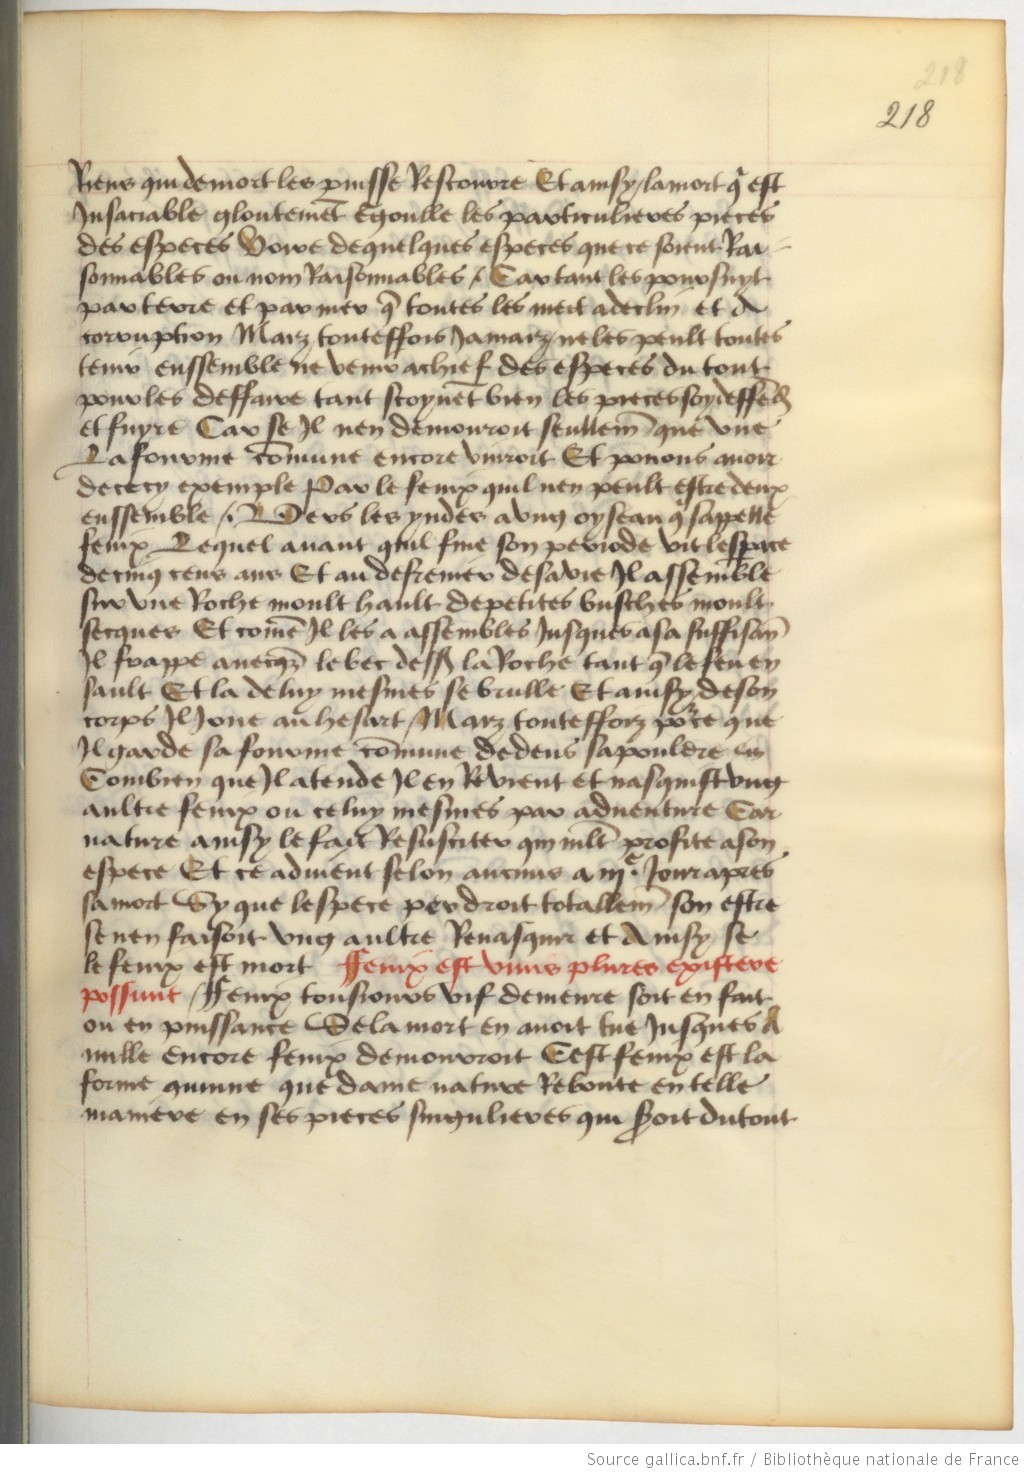 218
218
Riens qui de mort les puisse Rescourre Et ainsy / la mort q̃ est
Insaciable gloutemẽt Egoulle les particulieres pieces
des especes Voire de quelques especes que ce soient Rai-
sonnables ou nom Raisonnables /. Car tant les poursuyt
par terre et par mer q̃ toutes les meit a declin et A
corruption Marz touteffois Jamarz ne les peult toutes
tenir enssemble ne venir a chief des especes du tout
pour les deffaire tant scoyuẽt bien les pieces soy deffẽd
et fuyre Car se Il nen demouroit seullem̃ que vne
La fourme cõmune encore viuroit Et pouons auoir
de cecy exemple Par le fenix quil nen peult estre deux
enssemble /. Vers les yndes a vng oyseau q̃ sappelle
fenix Lequel auant quil fine son periode vit lespace
de cinq cens ans Et au defremier de sa vie Il assemble
sur vne Roche moult hault de petites busches moult
secques Et cõmẽ Il les a assembles Jusques a sa suffisan̄
Il frappe auecqz le bec dess9 la Roche tant q̃ le feu en
sault Et la de luy mesmes se brulle Et ainsy de son
corps Il Joue au hesart / Marz touteffoiz por ce que
Il garde sa fourme cõmune dedens sa pouldre
Combien que Il atende Il en Reuient et nasquist vng
aultre fenix ou celuy mesmes par aduenture Car
nature ainsy le fait Resusciter qui mlt̃ profite a son
espece Et ce aduient selon aucuns a iije Jour apres
sa mort Sy que lespece perdroit totallem̃ son estre
se nen faisoit vng aultre Renasquir et Ainsy se
le fenix est mort ffenix est viuus plures existere
possunt / ffenix tousiours vif demeure soit en fait
ou en puissance Se la mort en auoit tue Jusques A
mille encore fenix demourroit Cest fenix est la
forme qumne que dame nature Reboute en telle
maniere en ses pieces singulieres qui s̃oit du tout
Source gallica.bnf.fr / Bibliothèque nationale de France